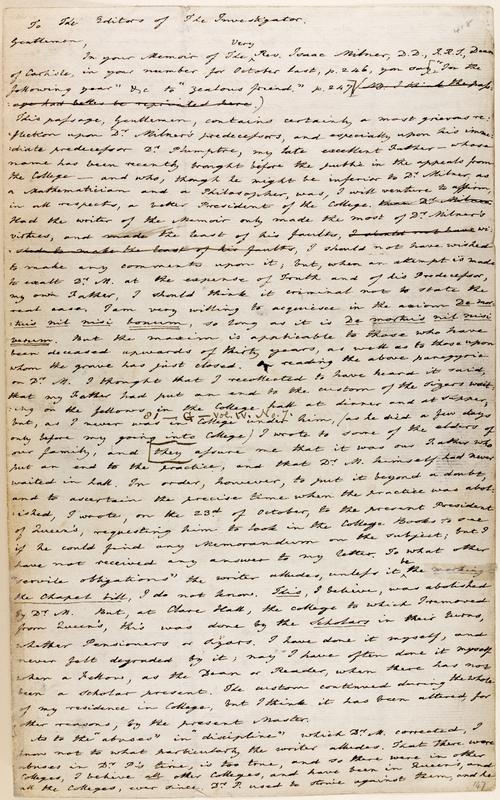 To The Editors of The Investigator.
Gentlemen,
In your Memoir of The Very Rev. Isaac Milner, D.D., F.R.S., Dean
of Carlisle, in your number for October last, p. 246, you say, "In the
following year" &c to "zealous friend." p. 247 (
had better be reprinted here.)
This passage, Gentlemen, contains certainly a most grievous re:
:flection upon Dr. Milner's predecessors, and especially upon his imme:
:diate predecessor Dr. Plumptre, my late excellent Father — whose
name has been recently brought before the public in the appeals from
the College — and who, though he might be inferior to Dr. Milner, as
a Mathematician and a Philosopher, was, I will venture to affirm,
in all respects, a better President of the College than Dr. Milner.
Had the writer of the Memoir only made the most of Dr. Milner's
virtues, and made the least of his faults, I should not have wi:
:shed to make the least of his faults, I should not have wished
to make any comments upon it; but, when an attempt is made
to exalt Dr. M. at the expense of Truth and of his Predecessor,
my own Father, I should think it criminal not to state the
real case. I am very willing to acquiesce in the axiom De mor:
:tuis nil nisi bonum, so long as it is De mortuis nil nisi
verum. But the maxim is applicable to those who have
been deceased upwards of thirty years, as well as to those upon
whom the grave has just closed. reading the above panegyric
on Dr. M. I thought that I recollected to have heard it said,
that my Father had put an end to the custom of the Sizars wait:
:ing on the fellows in the College Hall at dinner and at supper,
but, as I never was in College under him, (as he died a few days
only before my going into College) I wrote to some of the elders of
our family, and they assure me that it was our Father who
put an end to the practice, and that Dr. M. himself had never
waited in hall. In order, however, to put it beyond a doubt,
and to ascertain the precise time when the practice was abol:
:ished, I wrote, on the 23d of October, to the present President
of Queen's, requesting him to look in the College Books to see
if he could find any Memorandum on the subject; but I
have not received any answer to my letter. To what other
"servile obligations" the writer alludes, unless it be the marking
the Chapel bill, I do not know. This, I believe, was abolished
by Dr. M. But, at Clare Hall, the College to which I removed
from Queen's, this was done by the Scholars in their turns,
whether Pensioners or Sizars. I have done it myself, and
never felt degraded by it; nay I have often done it myself
when a Fellow, as the Dean or Reader, when there has not
been a Scholar present. The custom continued during the whole
of my residence in College, but I think it has been altered, for
other reasons, by the present Master.
As to the "abuses" in "discipline" which Dr. M. corrected, I
know not to what particularly the writer alludes. That there were
abuses in Dr. P.'s time, is too true, and so there were in other
Colleges, I believe all other Colleges, and have been in Queen's, and
all the Colleges, ever since. Dr. P. used to strive against them, and he
147